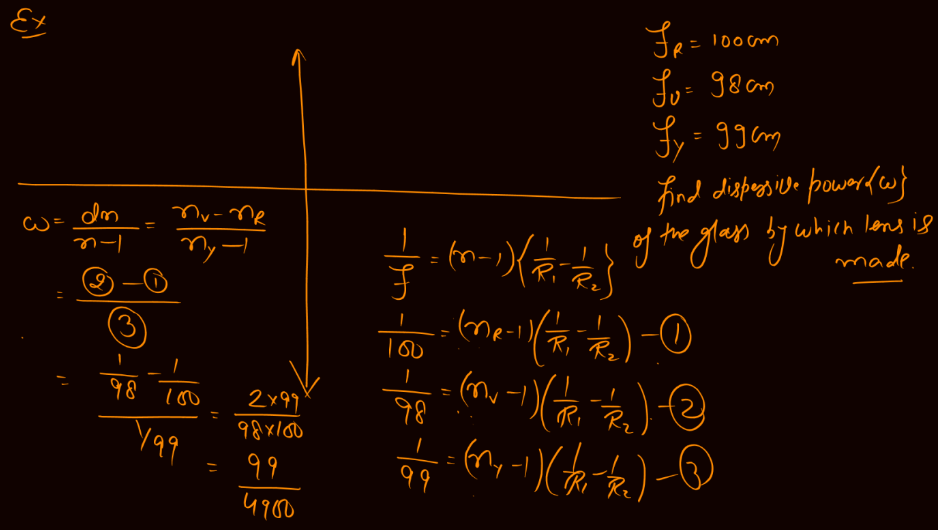 Ex
f_R = 100cm
f_v = 98cm
f_y = 99cm
find dispersive power{ω}
of the glass by which lens is
made.
ω = dn/(n-1) = (n_v - n_R)/(n_y - 1)
= (② - ①)/③
= (1/98 - 1/100)/(1/99) = (2×99)/(98×100)
= 99/4900
1/f = (n-1){1/R₁ - 1/R₂}
1/100 = (n_R-1)(1/R₁ - 1/R₂) - ①
1/98 = (n_v-1)(1/R₁ - 1/R₂) - ②
1/99 = (n_y-1)(1/R₁ - 1/R₂) - ③